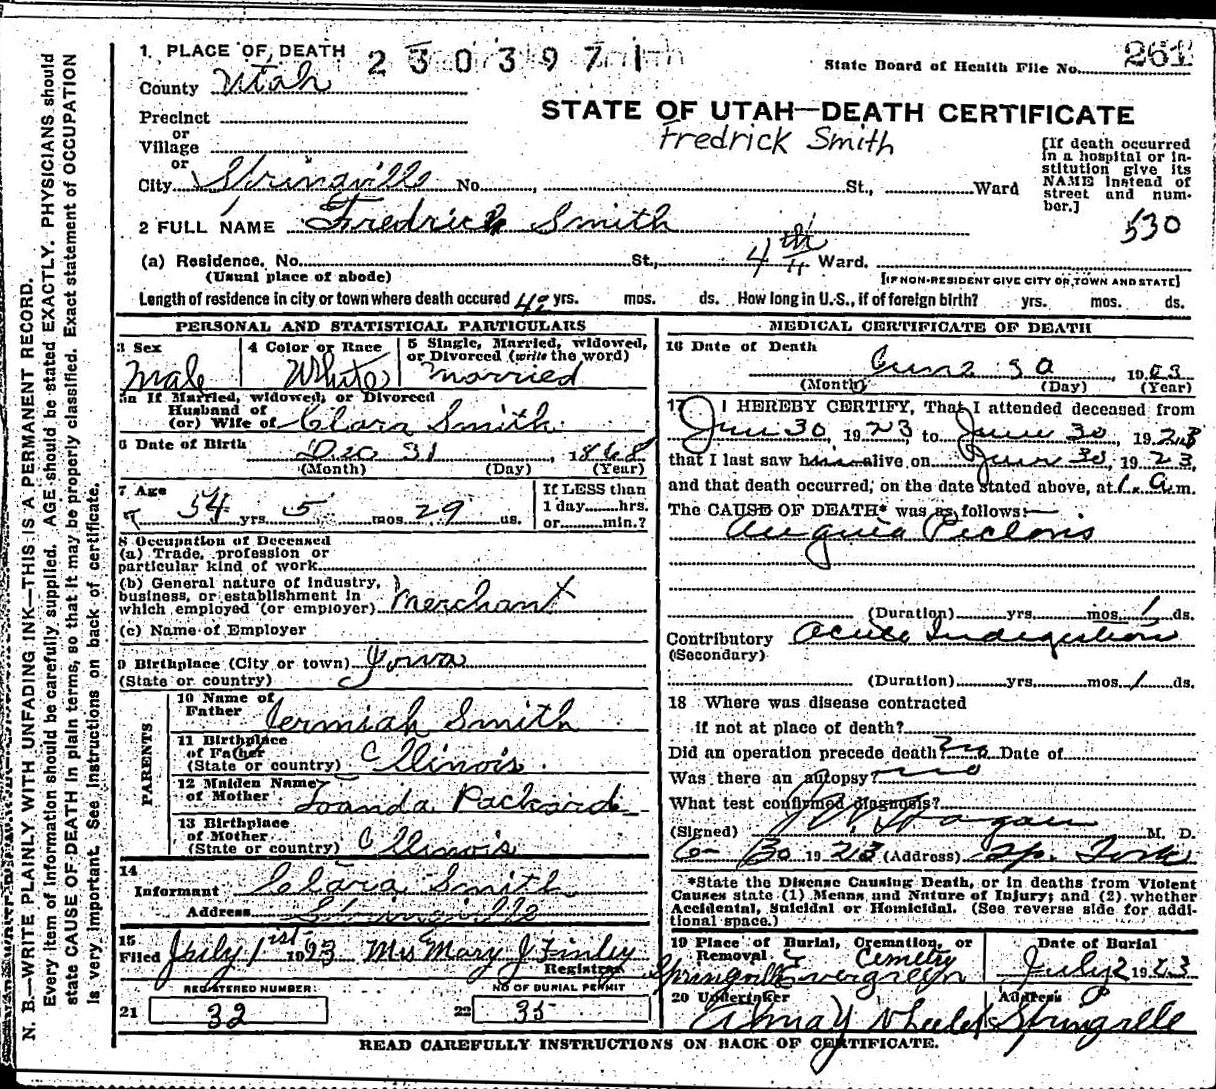 N. B.—WRITE PLAINLY WITH UNFADING INK—THIS IS A PERMANENT RECORD.
Every item of information should be carefully supplied. AGE should be stated EXACTLY. PHYSICIANS should
state CAUSE OF DEATH in plain terms, so that it may be properly classified. Exact statement of OCCUPATION
is very important. See instructions on back of certificate.
1. PLACE OF DEATH 2 3 0 3 9 7 1
State Board of Health File No. 261
County Utah
STATE OF UTAH—DEATH CERTIFICATE
Fredrick Smith
Precinct
or
Village
or
City Springville No. , St., Ward
[If death occurred
in a hospital or in-
stitution give its
NAME instead of
street and num-
ber.]
530
2 FULL NAME Fredrick Smith
(a) Residence, No. St., 4th Ward.
(Usual place of abode) [IF NON-RESIDENT GIVE CITY OR TOWN AND STATE]
Length of residence in city or town where death occured 40 yrs. mos. ds. How long in U.S., if of foreign birth? yrs. mos. ds.
PERSONAL AND STATISTICAL PARTICULARS
3 Sex
Male
4 Color or Race
White
5 Single, Married, widowed,
or Divorced (write the word)
Married
5a If Married, widowed, or Divorced
Husband of
(or) Wife of Clara Smith
6 Date of Birth
Dec 31, 1868
(Month) (Day) (Year)
7 Age
54 yrs. 5 mos. 29 ds.
If LESS than
1 day hrs.
or min.?
8 Occupation of Deceased
(a) Trade, profession or
particular kind of work
(b) General nature of Industry,
business, or establishment in
which employed (or employer) Merchant
(c) Name of Employer
9 Birthplace (City or town) Iowa
(State or country)
PARENTS
10 Name of
Father Jermiah Smith
11 Birthplace
of Father
(State or country) Illinois
12 Maiden Name
of Mother Packard
13 Birthplace
of Mother
(State or country) Illinois
14
Informant Clara Smith
Address Springville
15
Filed July 1st 1923 Mrs Mary J Finley
Registrar
REGISTERED NUMBER
21 32
NO OF BURIAL PERMIT
22 35
MEDICAL CERTIFICATE OF DEATH
16 Date of Death
June 30, 1923
(Month) (Day) (Year)
17 I HEREBY CERTIFY, That I attended deceased from
June 30, 1923, to June 30, 1923
that I last saw him alive on June 30, 1923,
and that death occurred, on the date stated above, at 1. a. m.
The CAUSE OF DEATH* was as follows:—
Anguia Pectoris
(Duration) yrs. mos. 1 ds.
Contributory Acute Indigestion
(Secondary)
(Duration) yrs. mos. 1 ds.
18 Where was disease contracted
if not at place of death?
Did an operation precede death? no Date of
Was there an autopsy? no
What test confirmed diagnosis?
(Signed) M. D.
6-30 1923 (Address) Sp. Fork
*State the Disease Causing Death, or in deaths from Violent
Causes state (1) Means and Nature of Injury; and (2) whether
Accidental, Suicidal or Homicidal. (See reverse side for addi-
tional space.)
19 Place of Burial, Cremation, or
Removal Cemetry
Springville Evergreen
Date of Burial
July 2 1923
20 Undertaker Address
Springville
READ CAREFULLY INSTRUCTIONS ON BACK OF CERTIFICATE.